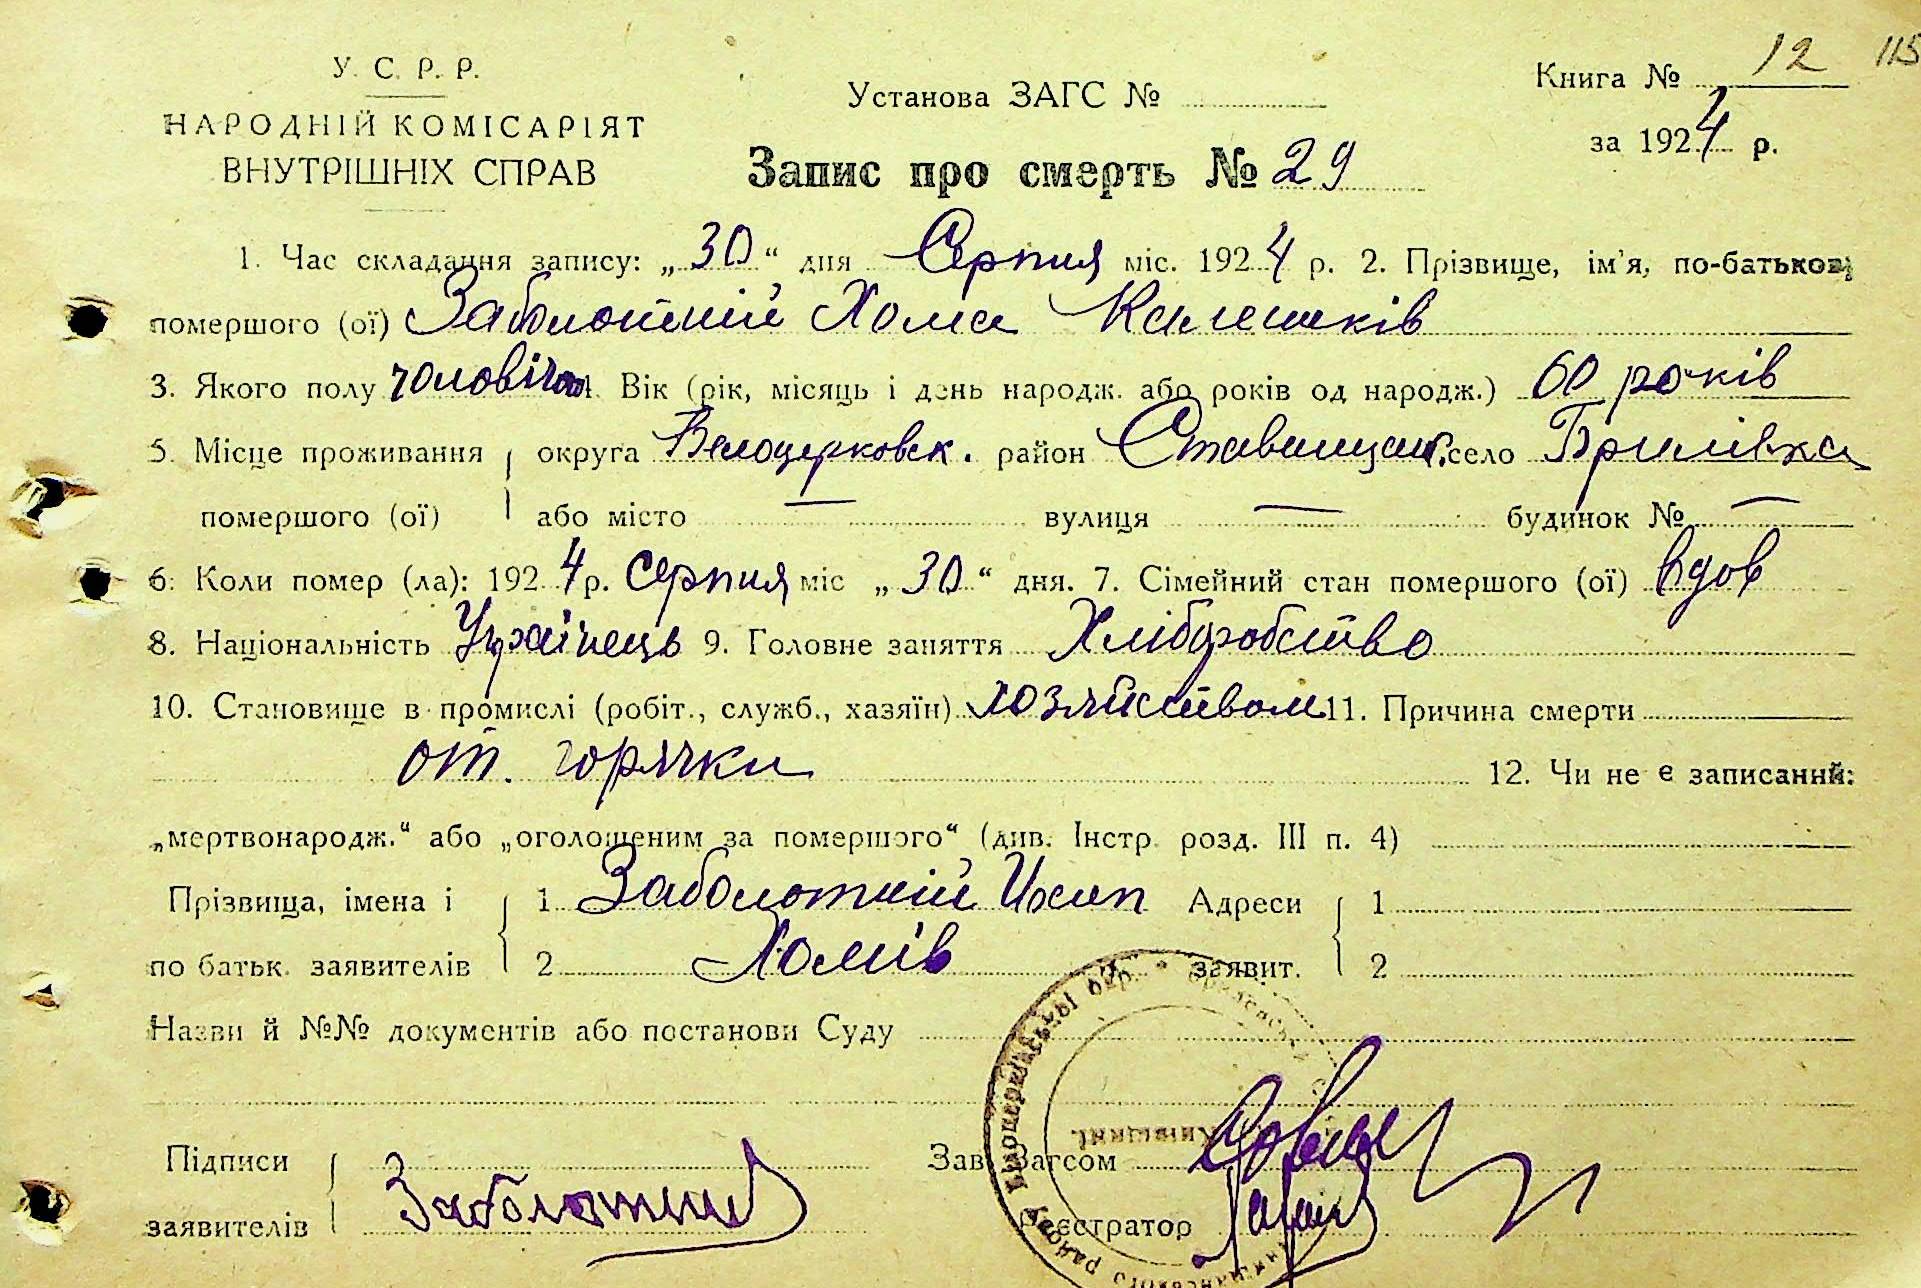 У. С. Р. Р.
НАРОДНІЙ КОМІСАРІЯТ
ВНУТРІШНІХ СПРАВ
Установа ЗАГС №
Запис про смерть № 29
Книга № 12 115
за 1924 р.
1. Час складання запису: „30“ дня Серпня міс. 1924 р. 2. Прізвище, ім'я, по-батькові
помершого (ої) Заболотній Хома Калеників
3. Якого полу чоловічої 4. Вік (рік, місяць і день народж. або років од народж.) 60 років
5. Місце проживання округа Білоцерковск. район Ставищан. село Брилівка
помершого (ої) або місто — вулиця — будинок № —
6. Коли помер (ла): 1924 р. серпня міс „30“ дня. 7. Сімейний стан помершого (ої) вдов
8. Національність Українець 9. Головне заняття Хліборобство
10. Становище в промислі (робіт., служб., хазяїн) хозяйством 11. Причина смерти
от. горячки 12. Чи не є записаний:
„мертвонародж.“ або „оголошеним за помершого“ (див. Інстр. розд. III п. 4)
Прізвища, імена і 1 Заболотній Йосип Адреси 1
по батьк. заявителів 2 Хомів заявит. 2
Назви й №№ документів або постанови Суду
Підписи Зав. Загсом
заявителів Заболотний Реєстратор